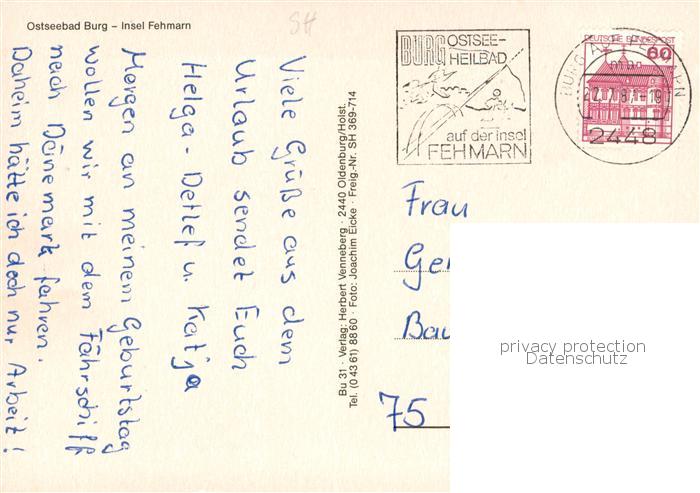 Ostseebad Burg – Insel Fehmarn
SH
Viele Grüße aus dem
Urlaub sendet Euch
Helga - Detlef u. Katja
Morgen an meinem Geburtstag
wollen wir mit dem Fährschiff
nach Dänemark fahren.
Daheim hätte ich doch nur Arbeit!
Bu 31 · Verlag: Herbert Venneberg · 2440 Oldenburg/Holst.
Tel. (0 43 61) 88 60 · Foto: Joachim Eicke · Freig.-Nr. SH 369-714
BURG OSTSEE-
HEILBAD
auf der insel
FEHMARN
DEUTSCHE BUNDESPOST
60
BURG AUF FEHMARN
2448
Frau
Ger
Bau
75
privacy protection
Datenschutz